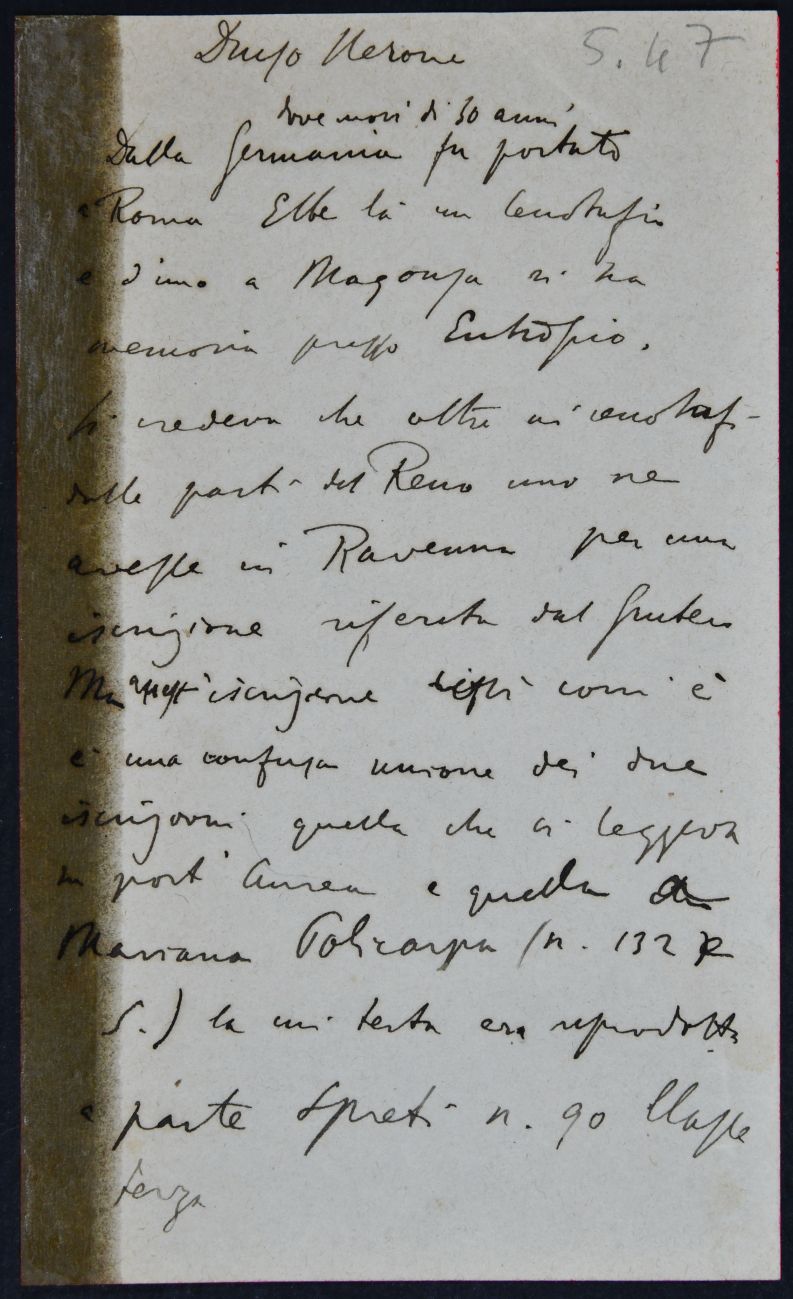 Druso Nerone 5.47
dove morì di 30 anni
Dalla Germania fu portato
a Roma Ebbe là un cenotafio
e d'uno a Magonza si ha
memoria presso Eutropio.
Si credeva che oltre ai cenotafi
dalle parti del Reno uno ne
avesse in Ravenna per una
iscrizione riferita dal Grutero
Ma quest'iscrizione com'è
è una confusa unione dei due
iscrizioni quella che si leggeva
in port'Aurea e quella
Mariana Policarpa (n. 132
S.) la cui testa era riprodotta
a parte Spreti n. 90 Classe
terza